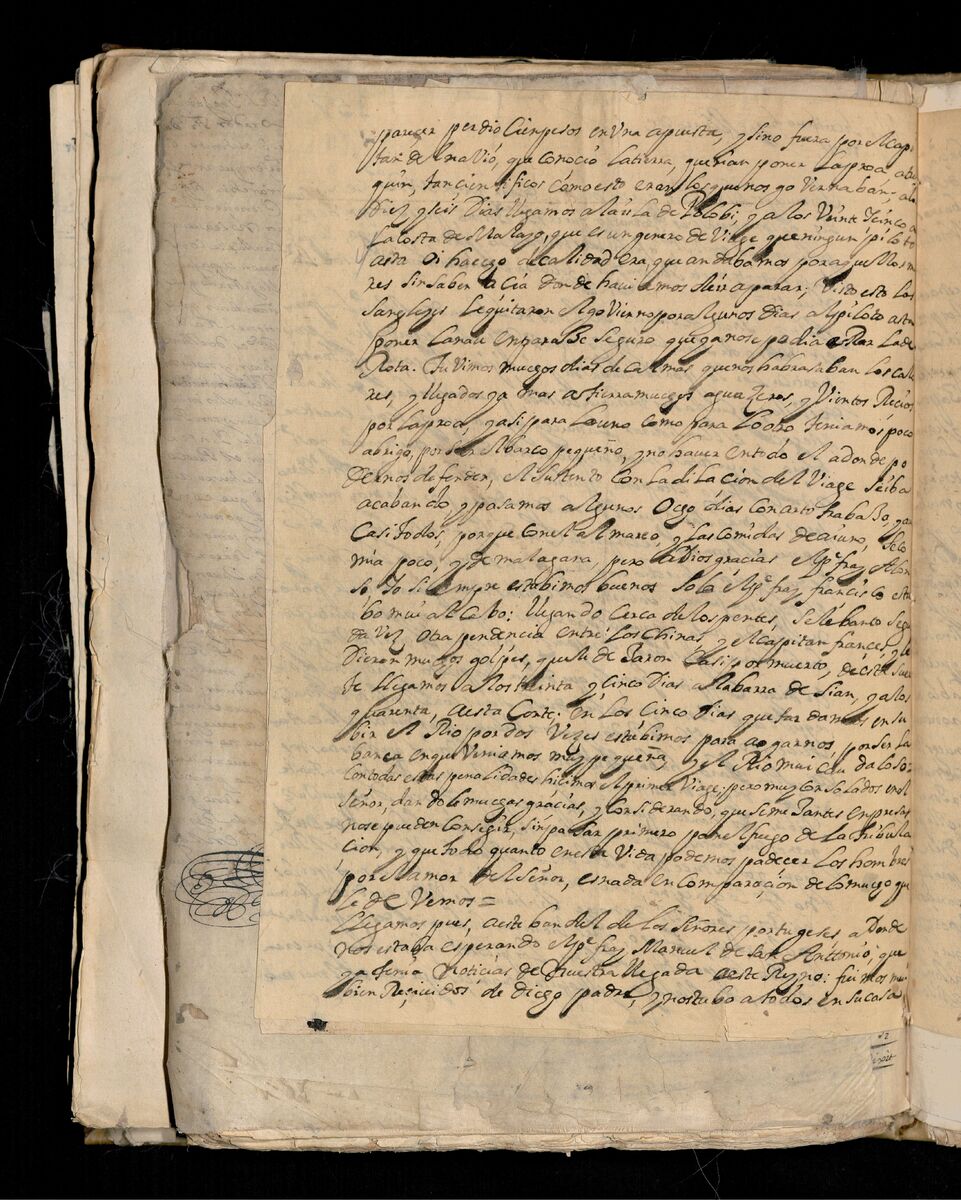 parecer perdio Cien pesos en Vna apuesta, y sino fuera por el capi
tan del naVio, que Conocio La tierra, querian poner La proa, a bu
quin, tan cientificos como esto eran los que nos goVernaban; a los
diez y seis Dias llegamos a la isla de Polobi, y a los Veinte y cinco a
La costa de Malayo, que es un genero de Viage que ningun piloto
asta oi ha ego de calidad era que andabamos por aquellos ma
res sin saber acia donde haviamos de ir a parar; Visto esto los
Sangleyes Le quitaron el goVierno por algunos dias al piloto asta
poner La naue en paraBe Seguro, que ya no se podia errar La de
Rota. TuVimos muegos dias de calmas que nos habrasaban los calo
res, y llegados ya mas a tierra muegos aguaZeros, y Vientos Recios
por La proa, y asi para Lo uno como para Lo otro teniamos poco
abrigo, por ser el barco pequeño, y no haver en todo el a donde po
dernos defender, el sustento con La dilacion del Viage se iba
acabando, y pasamos algunos ocgo dias con arto trabaBo, y
Casi todos, porque con el almareo, y Las comidas de aiuno, se co
mia poco, y de mala gana, pero a Dios gracias el pe. fray Alon
so, Yo siempre estabimos buenos solo el pe. fray francisco estu
bo mui al Cabo: llegando cerca de los puentes, se leBanto segun
da Vez otra pendencia entre Los Chinas, y el Capitan frances, y le
Dieron muegos golpes, que le deJaron Casi por muerto, de esta suer
te llegamos a los treinta y cinco Dias a la barra de Sian, y a los
quarenta, a esta Corte; en Los Cinco dias que tardamos en su
bir el Rio por dos Vezes estubimos para aogarnos, por ser la
banca en que Veniamos muy pequeña, y el Rio mui caudaloso:
Con todas estas penalidades hicimos el primer Viage; pero muy consolados en el
Señor, dandole muegas gracias, y considerando, que semeJantes empresas
no se pueden conseguir, sin pasar primero por el fuego de La tribula
cion, y que todo quanto en esta Vida podemos padecer Los hombres
por el amor del Señor, es nada en comparaçion de lo muego que
le deVemos =
Llegamos pues, a este bandel de los Señores portugeses a Donde
nos estaba esperando el pe. fray Manuel de San Antonio, que
ya tenia noticias de nuestra llegada a este Reyno: fuimos mui
bien Reçiuidos de diego padre, y nos tubo a todos en su casa